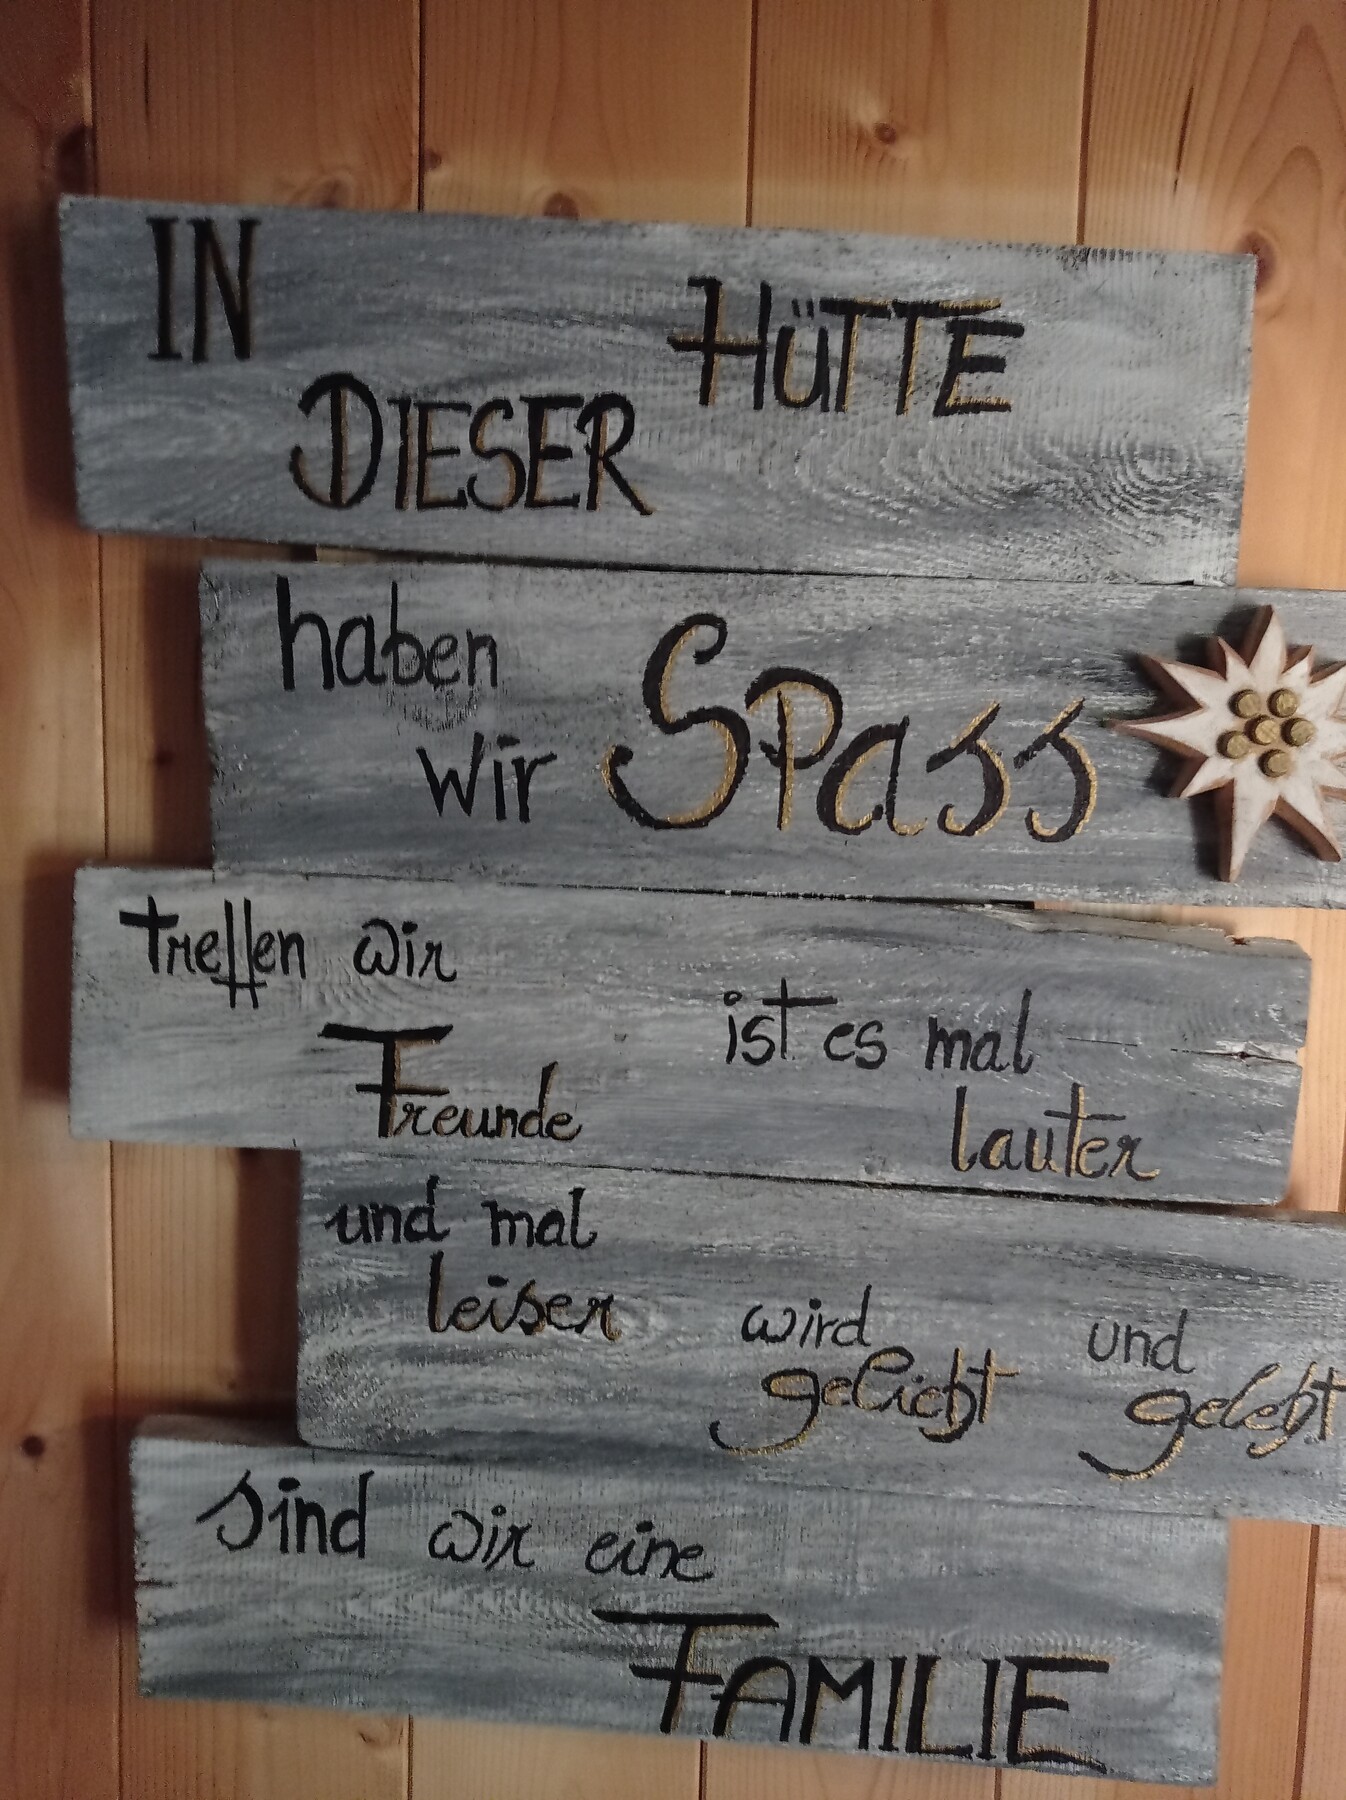 IN
DIESER HÜTTE
haben
wir Spass
treffen wir
Freunde
ist es mal
lauter
und mal
leiser
wird
geliebt
und
gelebt
sind wir eine
FAMILIE